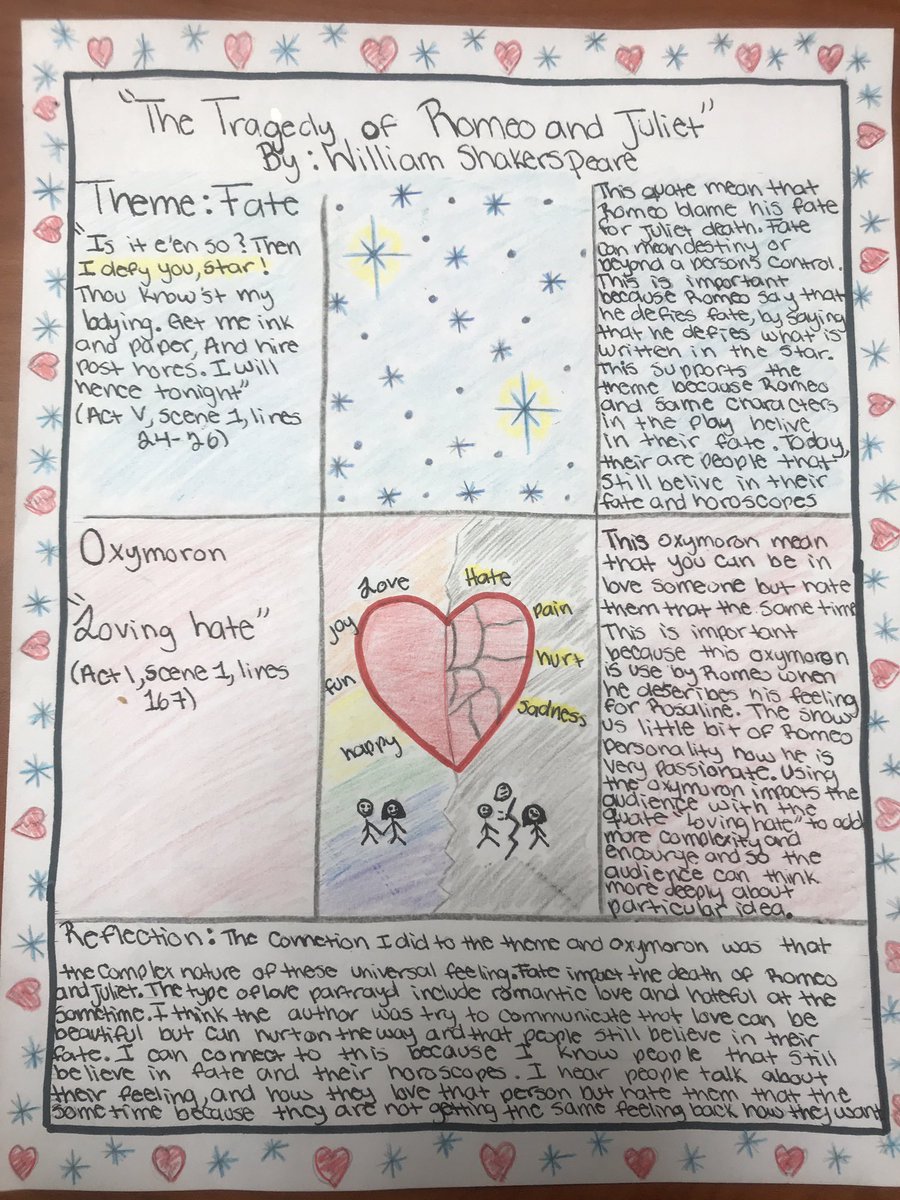 "The Tragedy of Romeo and Juliet"
By: William Shakerspeare
Theme: Fate
"Is it e'en so? Then
I defy you, star!
Thou know'st my
lodying. Get me ink
and paper, And hire
post hores. I will
hence tonight"
(Act V, scene 1, lines
24-26)
This quate mean that
Romeo blame his fate
for Juliet death. Fate
can mean destiny or
beyond a person's control.
This is important
because Romeo say that
he defies fate, by saying
that he defies what is
written in the star.
This supports the
theme because Romeo
and some characters
in the play belive
in their fate. Today,
their are people that
still belive in their
fate and horoscopes
Oxymoron
"Loving hate"
(Act 1, scene 1, lines
167)
Love
joy
fun
happy
Hate
pain
hurt
sadness
This oxymoron mean
that you can be in
love someone but hate
them that the same time
This is important
because this oxymoron
is use by Romeo when
he describes his feeling
for Rosaline. The show
us little bit of Romeo
personality how he is
very passionate. Using
the oxymoron impacts the
audience with the
quate "loving hate" to add
more complexity and
encourye and so the
audience can think
more deeply about
particular idea.
Reflection: The connetion I did to the theme and oxymoron was that
the complex nature of these universal feeling. Fate impact the death of Romeo
and Juliet. The type of love partrayd include romantic love and hateful at the
sametime. I think the author was try to communicate that love can be
beautiful but can hurt on the way and that people still believe in their
fate. I can connect to this because I know people that still
believe in fate and their horoscopes. I hear people talk about
their feeling, and how they love that person but hate them that the
sametime because they are not getting the same feeling back how they want